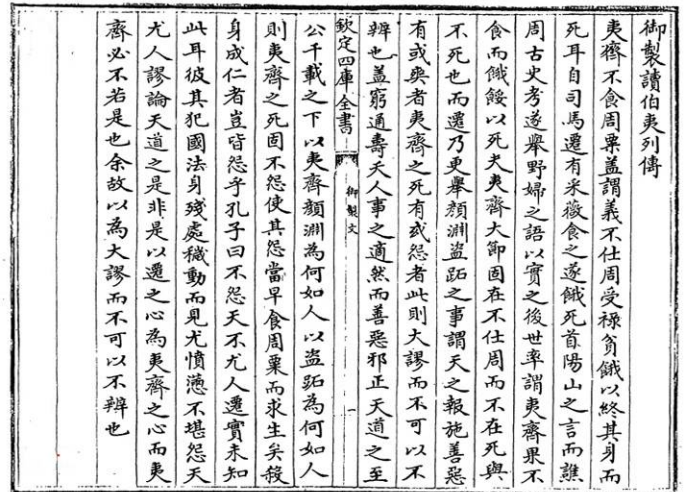 御製讀伯夷列傳
夷齊不食周粟蓋謂義不仕周受祿貧餓以終其身而
死耳自司馬遷有采薇食之遂餓死首陽山之言而譙
周古史考遂舉野婦之語以實之後世率謂夷齊果不
食而餓餒以死夫夷齊大節固在不仕周而不在死與
不死也而遷乃更舉顏淵盜跖之事謂天之報施善惡
有或爽者夷齊之死有或怨者此則大謬而不可以不
辨也蓋窮通壽夭人事之適然而善惡邪正天道之至
欽定四庫全書
御製文
一
公千載之下以夷齊顏淵為何如人以盜跖為何如人
則夷齊之死固不怨使其怨當早食周粟而求生矣殺
身成仁者豈皆怨乎孔子曰不怨天不尤人遷實未知
此耳彼其犯國法身殘處穢動而見尤憤懣不堪怨天
尤人謬論天道之是非是以遷之心為夷齊之心而夷
齊必不若是也余故以為大謬而不可以不辨也